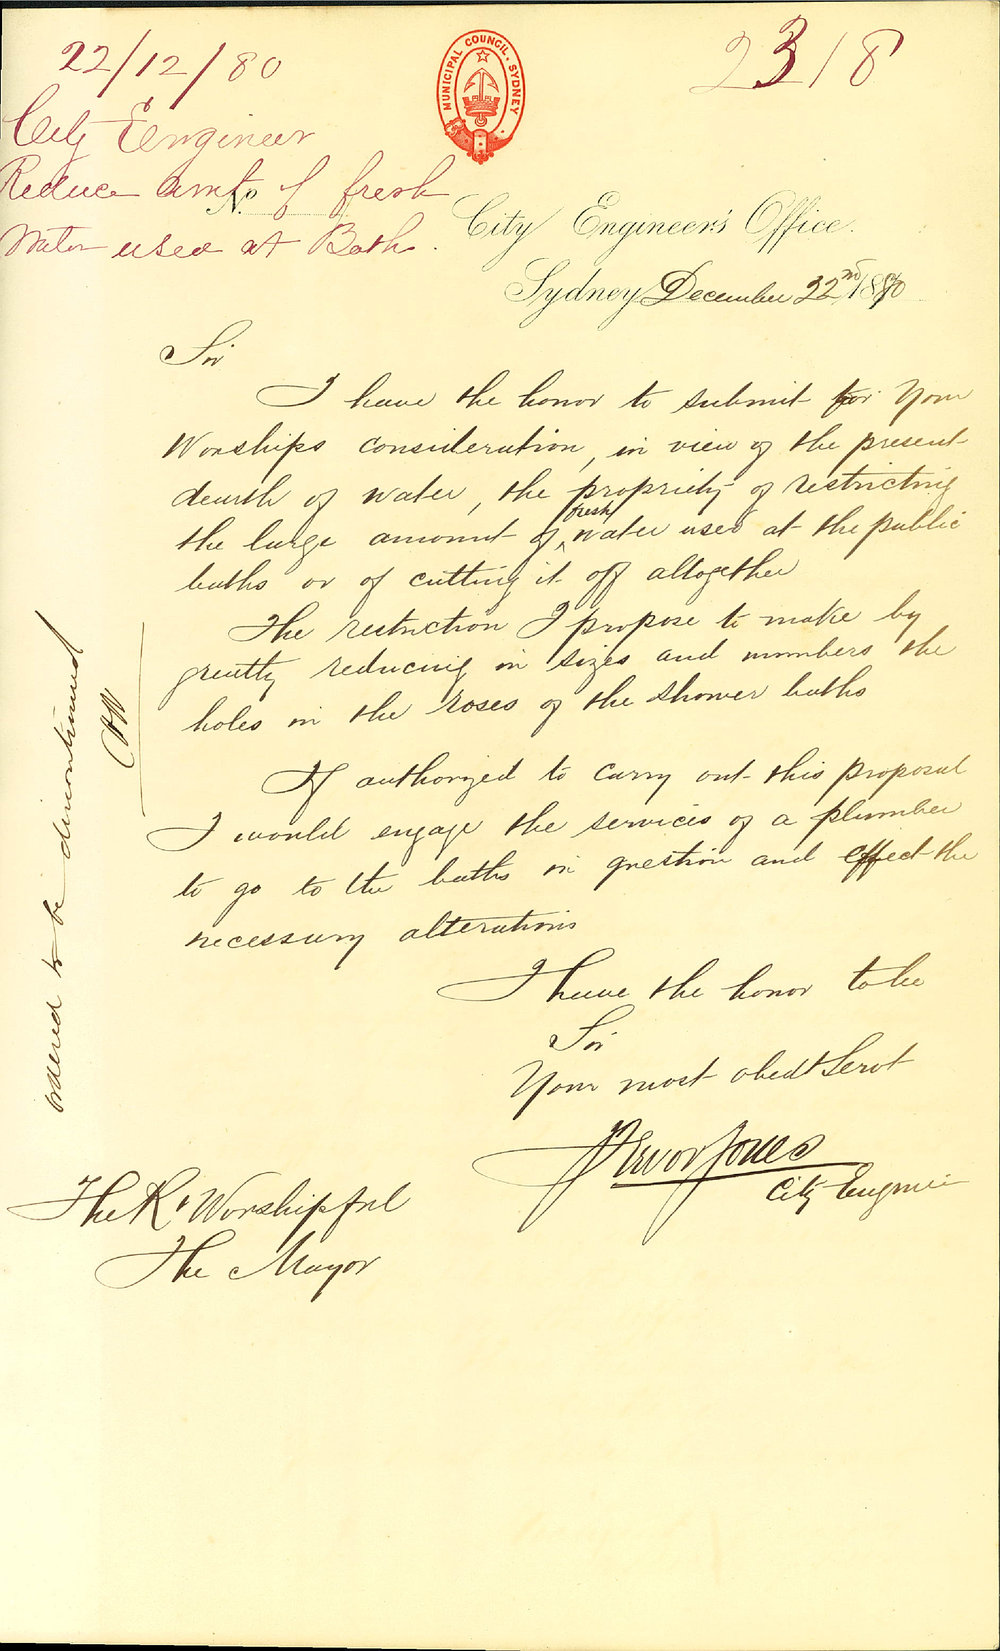 22/12/80
2318
City Engineer
Reduce amt of fresh
Water used at Bath.
MUNICIPAL COUNCIL. SYDNEY
No.
City Engineer's Office.
Sydney December 22nd 1880
Sir
I have the honor to submit for Your
Worships consideration, in view of the present
dearth of water, the propriety of restricting
the large amount of fresh water used at the public
baths or of cutting it off altogether
The restriction I propose to make by
greatly reducing in sizes and numbers the
holes in the roses of the shower baths
If authorized to carry out this proposal
I would engage the services of a plumber
to go to the baths in question and effect the
necessary alterations
I have the honor to be
Sir
Your most obedt Servt
Trevor Jones
City Engineer
The Rt Worshipful
The Mayor
ordered to be discontinued